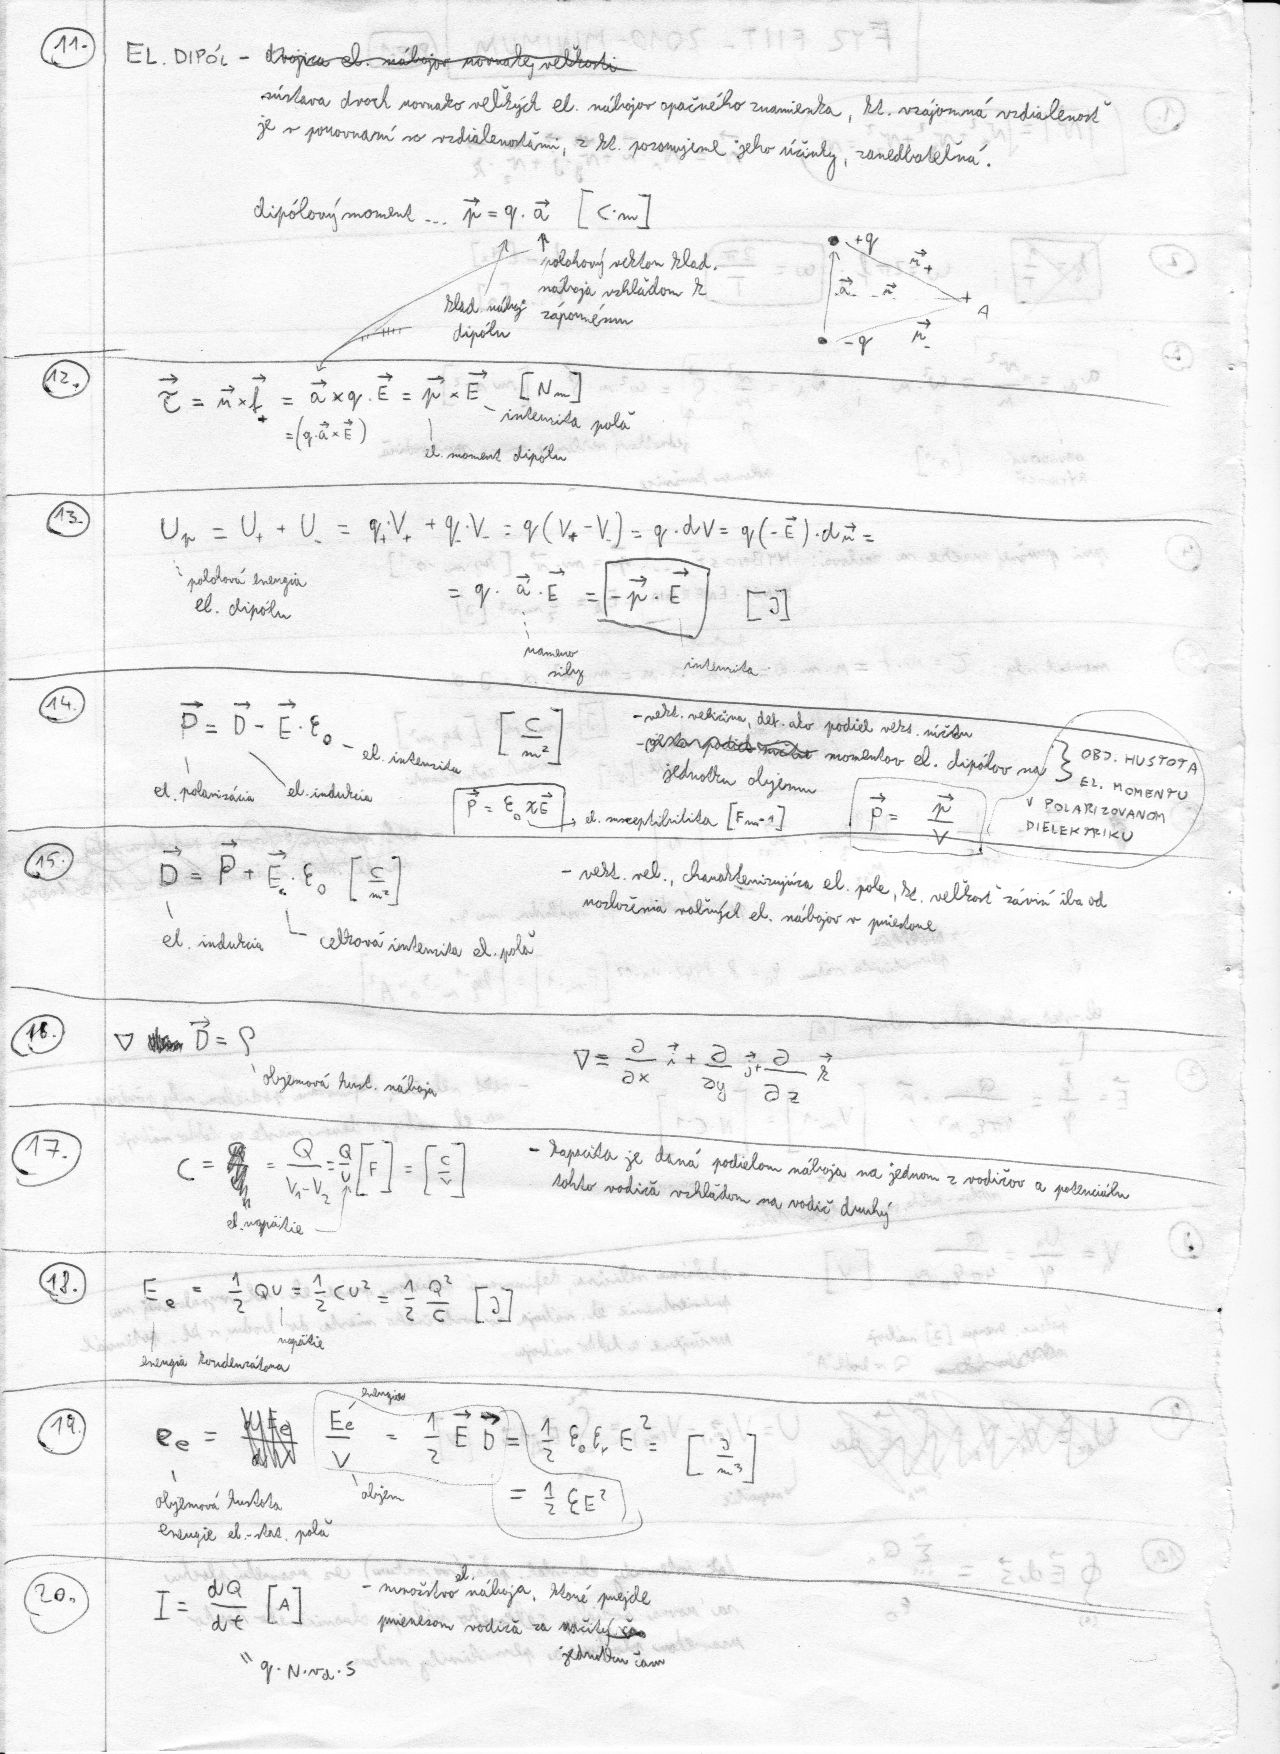 11.
EL. DIPÓL - dvojica el. nábojov rovnakej veľkosti
sústava dvoch rovnako veľkých el. nábojov opačného znamienka, kt. vzájomná vzdialenosť
je v porovnaní so vzdialenosťami, z kt. pozorujeme jeho účinky, zanedbateľná.
dipólový moment ... p⃗ = q · a⃗ [C·m]
klad. náboj
dipólu
polohový vektor klad.
náboja vzhľadom k
zápornému
+q
r⃗₊
a⃗
r⃗
A
-q
r⃗₋
12.
τ⃗ = r⃗ × f⃗₊ = a⃗ × q · E⃗ = p⃗ × E⃗ [Nm]
= (q · a⃗ × E⃗)
intenzita poľa
el. moment dipólu
13.
Uₚ = U₊ + U₋ = q₊·V₊ + q₋·V₋ = q(V₊ - V₋) = q · dV = q(-E⃗) · dr⃗ =
= q · a⃗ · E⃗ = -p⃗ · E⃗ [J]
polohová energia
el. dipólu
rameno
sily
intenzita
14.
P⃗ = D⃗ - E⃗ · ε₀ [C/m²]
el. intenzita
el. polarizácia
el. indukcia
P⃗ = ε₀ϰE⃗
el. susceptibilita [Fm⁻¹]
- vekt. veličina, def. ako podiel vekt. súčtu
momentov el. dipólov na
jednotku objemu
P⃗ = p⃗/V
OBJ. HUSTOTA
EL. MOMENTU
V POLARIZOVANOM
DIELEKTRIKU
15.
D⃗ = P⃗ + E⃗ · ε₀ [C/m²]
el. indukcia
celková intenzita el. poľa
- vekt. vel., charakterizujúca el. pole, kt. veľkosť závisí iba od
rozloženia voľných el. nábojov v priestore
16.
∇ D⃗ = ρ
objemová hust. náboja
∇ = ∂/∂x i⃗ + ∂/∂y j⃗ + ∂/∂z k⃗
17.
C = = Q/(V₁-V₂) = Q/U [F] = [C/V]
el. napätie
- kapacita je daná podielom náboja na jednom z vodičov a potenciálu
tohto vodiča vzhľadom na vodič druhý
18.
Eₑ = 1/2 QU = 1/2 CU² = 1/2 Q²/C [J]
napätie
energia kondenzátora
19.
eₑ = dEₑ/dV Eₑ/V = 1/2 E⃗ D⃗ = 1/2 ε₀εᵣ E² = [J/m³]
= 1/2 εE²
energia
objem
objemová hustota
energie el.-stat. poľa
20.
I = dQ/dt [A]
" q · N · v_d · S
- množstvo el. náboja, ktoré prejde
prierezom vodiča za určitý čas
jednotku času